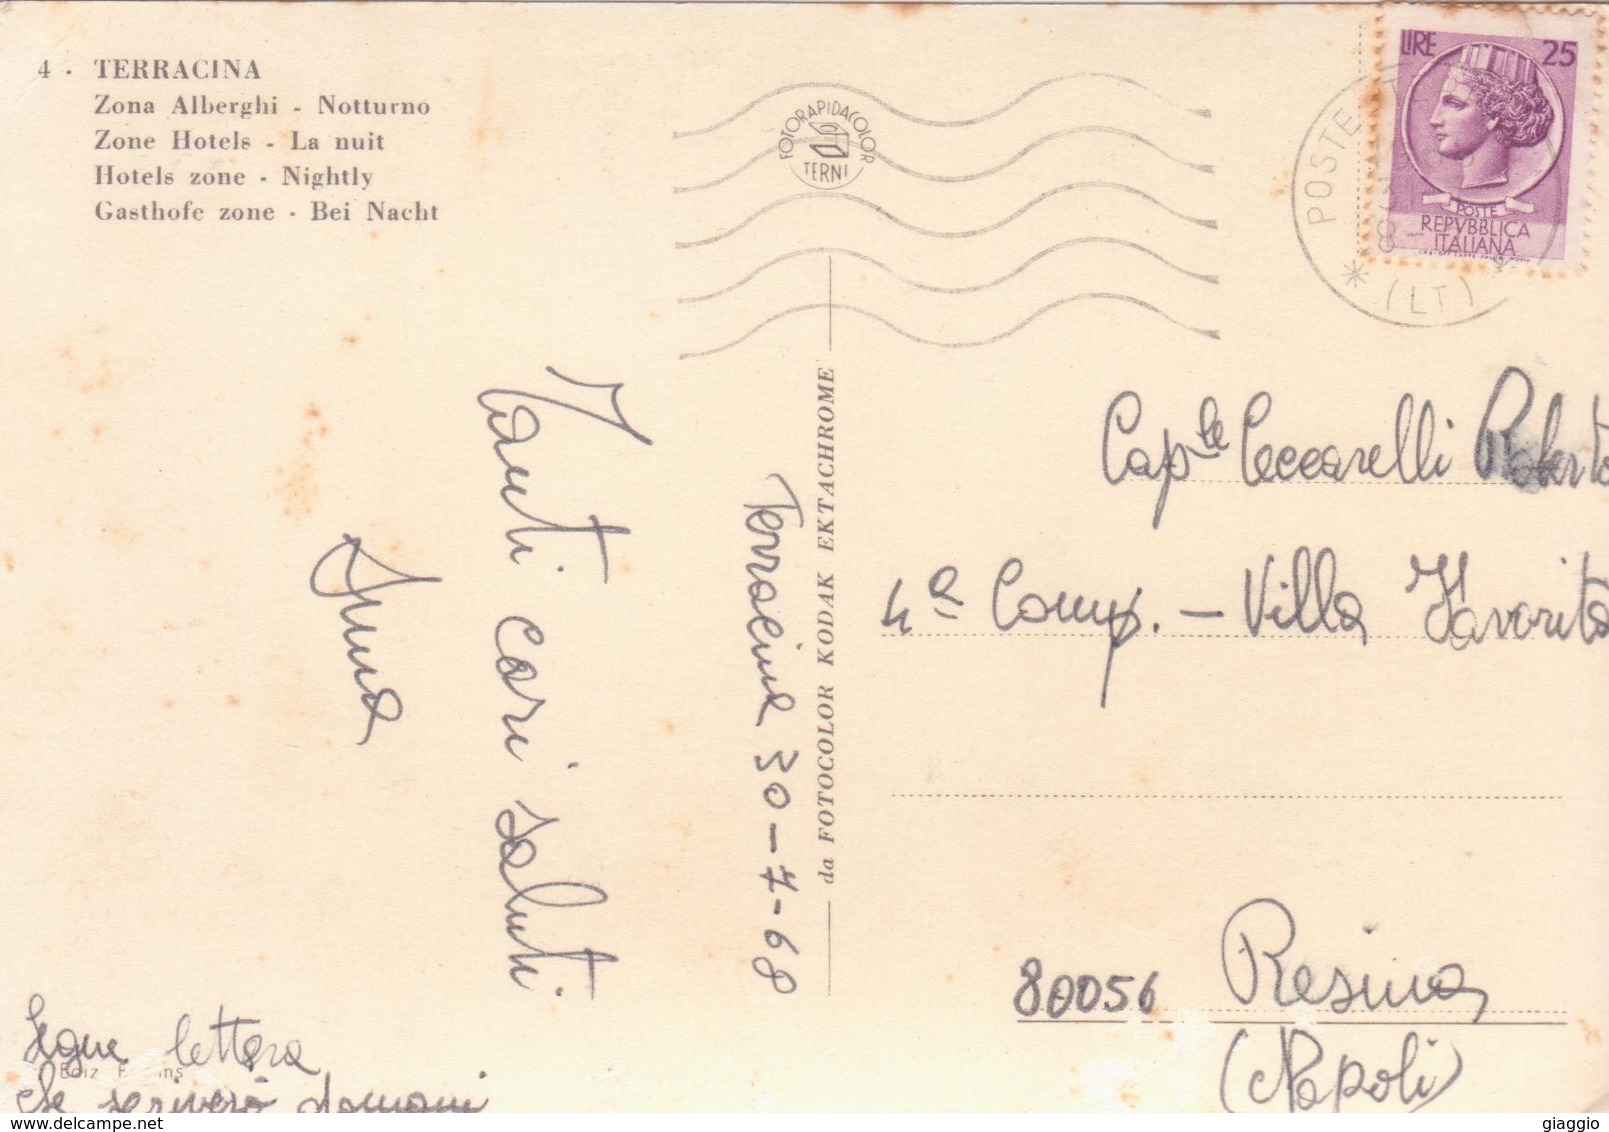 4 - TERRACINA
Zona Alberghi - Notturno
Zone Hotels - La nuit
Hotels zone - Nightly
Gasthofe zone - Bei Nacht
FOTORAPIDACOLOR
TERNI
LIRE 25
POSTE
REPVBBLICA
ITALIANA
POSTE
8-
* (LT)
Terracina 30-7-68
Tanti cari saluti
da FOTOCOLOR KODAK EKTACHROME
Cap.le Ceccarelli Roberto
4a Comp. - Villa Favorita
80056 Resina
(Napoli)
Segue lettera
che scriverò domani
Ediz
www.delcampe.net
giaggio